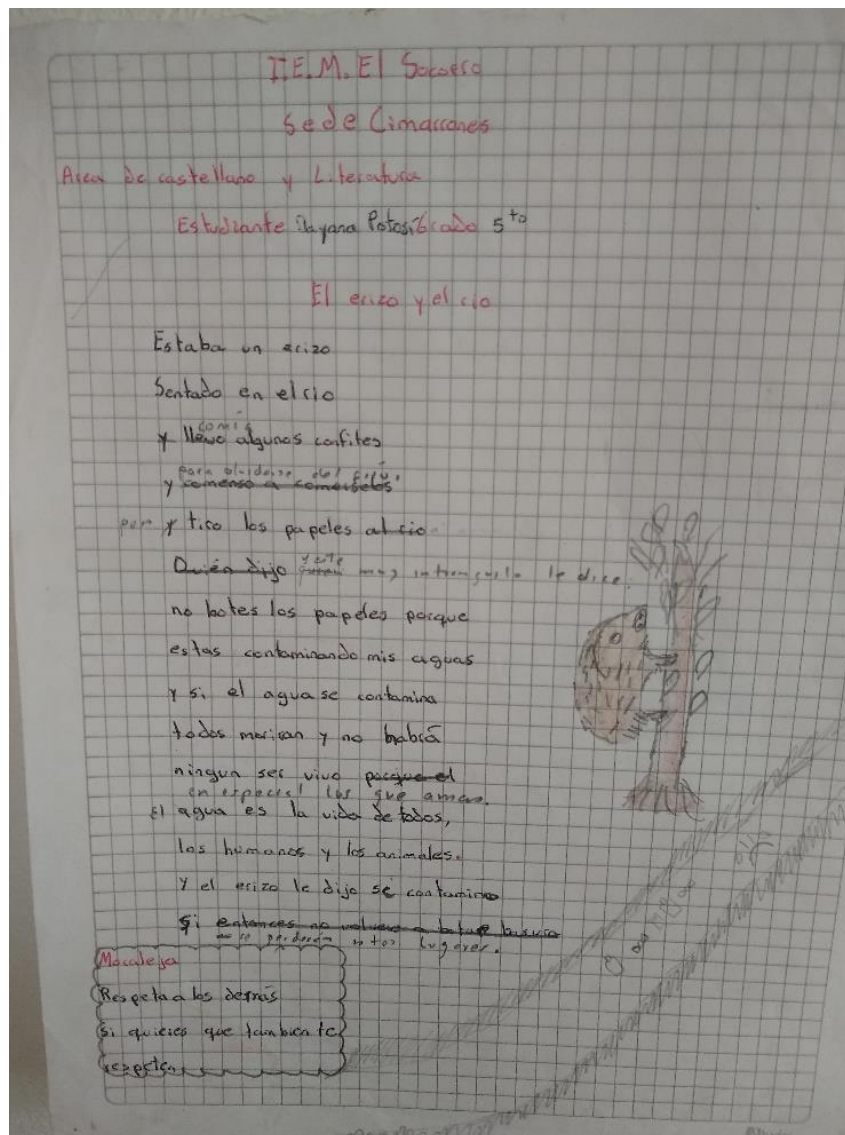 I.E.M. El Socorro
Sede Cimarrones
Area de castellano y Literatura
Estudiante Dayana Potosí Grado 5to
El erizo y el río
Estaba un erizo
Sentado en el rio
comió
y llevo algunos confites
para olvidarse del
y comenso a comerselos
y tiro los papeles al rio
Quién dijo y este muy intranquilo le dice.
no botes los papeles porque
estas contaminando mis aguas
y si el agua se contamina
todos moriran y no habrá
ningun ser vivo porque el
en especial los que amas.
El agua es la vida de todos,
los humanos y los animales.
Y el erizo le dijo si contamino
Si entonces no volvere a botar basura
se perderán estos lugares.
Moraleja
Respeta a los demás
Si quieres que tambien te
respeten